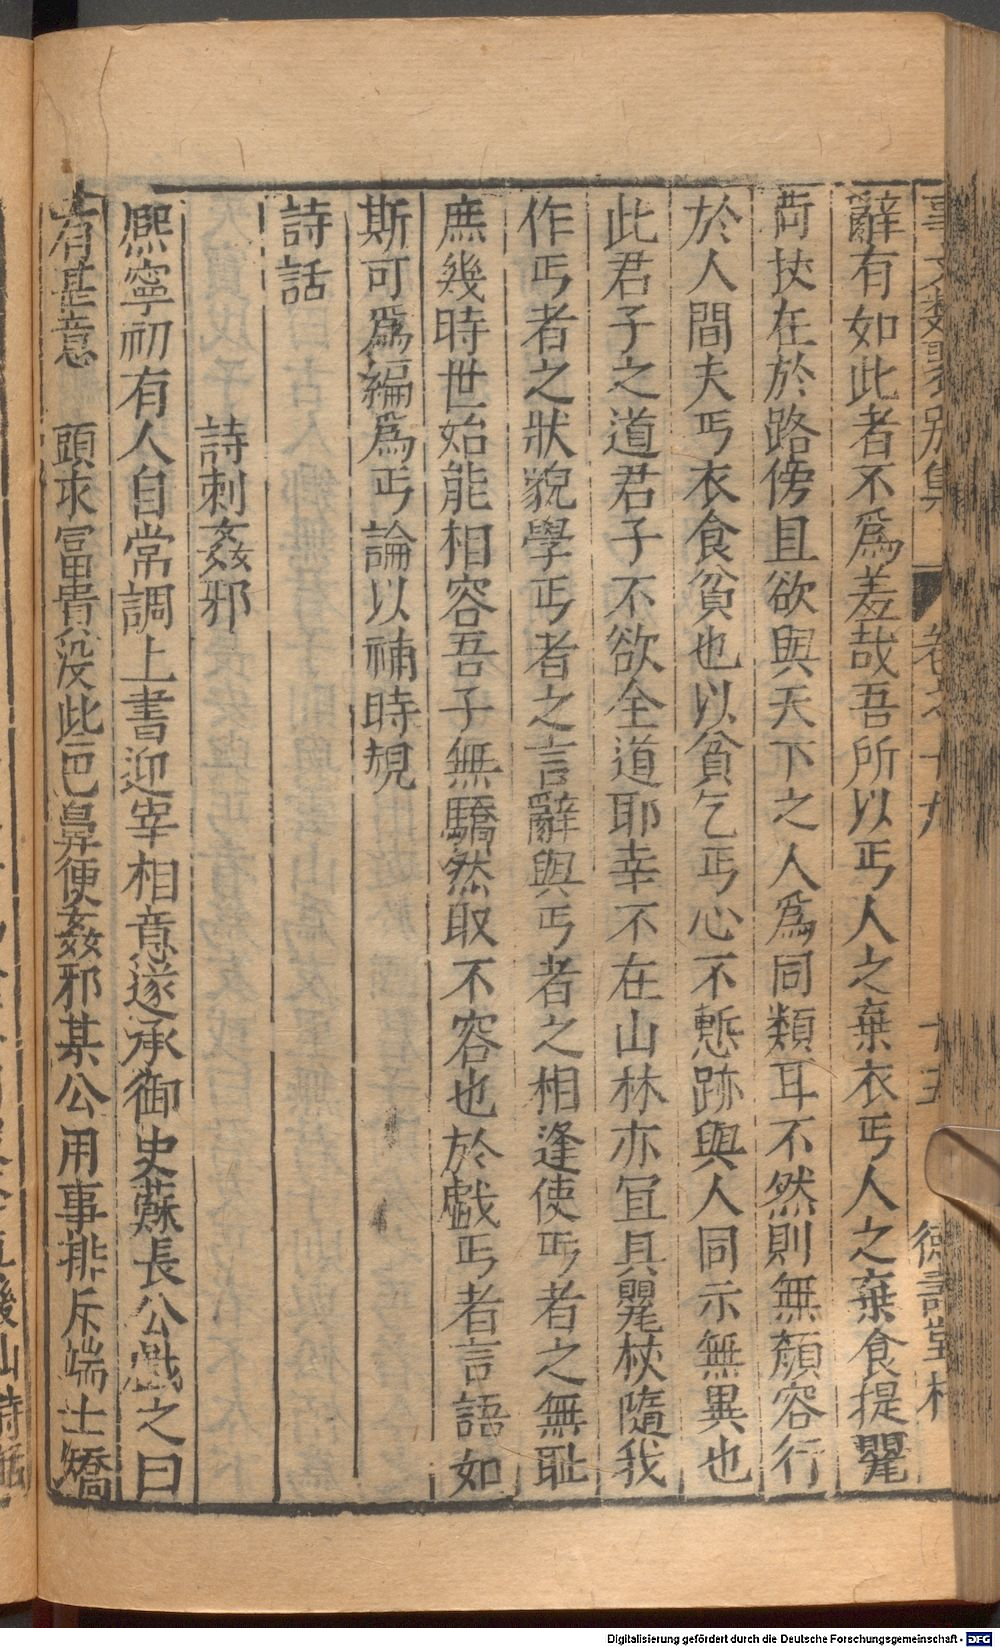 事文類聚別集 卷之十九 十五 德壽堂梓
辭有如此者不爲羞哉吾所以丐人之棄衣丐人之棄食提罌
荷挾在於路傍且欲與天下之人爲同類耳不然則無顏容行
於人間夫丐衣食貧也以貧乞丐心不慙跡與人同示無異也
此君子之道君子不欲全道耶幸不在山林亦冝具罌杖隨我
作丐者之狀貌學丐者之言辭與丐者之相逢使丐者之無耻
庶幾時世始能相容吾子無驕然取不容也於戱丐者言語如
斯可爲編爲丐論以補時規
詩話
詩刺姦邪
熈寧初有人自常調上書迎宰相意遂承御史蘇長公戱之曰
有甚意頭求冨貴没些巴鼻便姦邪某公用事排斥端士矯
Digitalisierung gefördert durch die Deutsche Forschungsgemeinschaft - DFG